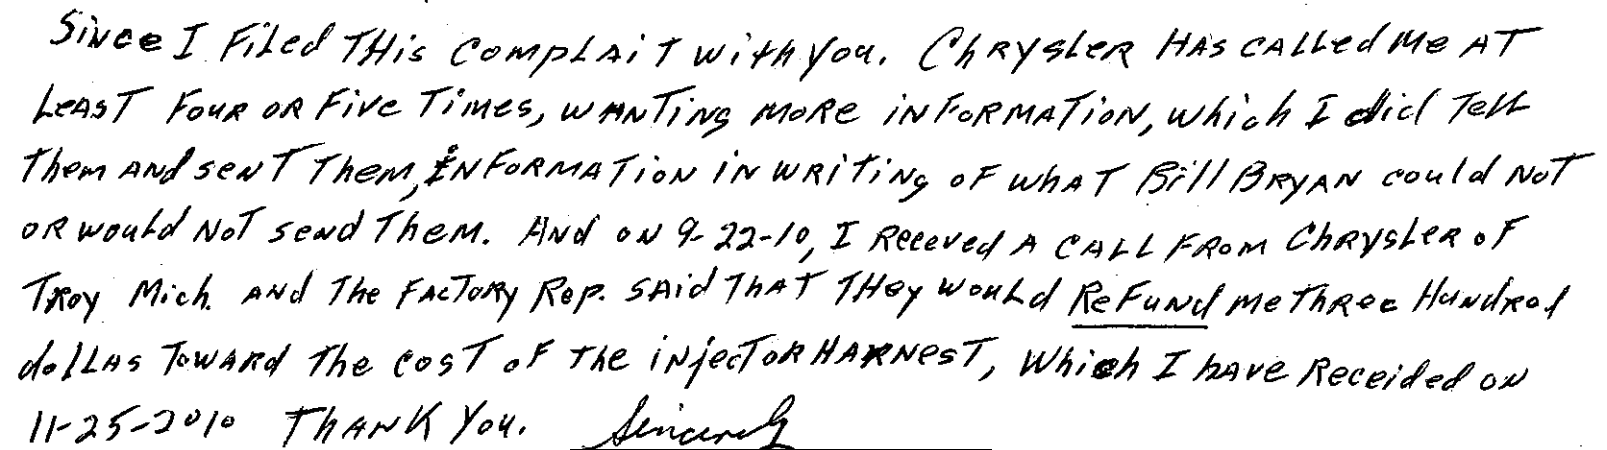 Since I Filed THis complait with you. Chrysler Has called me AT
Least Four or Five Times, wanting more information, which I did Tell
Them and sent Them, information in writing of what Bill Bryan could not
or would not send Them. And on 9-22-10, I receved a call from Chrysler of
Troy Mich. and The Factory Rep. said That They would ReFund me Three Hundred
dollas Toward The cost of The injector Harnest, which I have Receided on
11-25-2010 Thank you. Sincerely